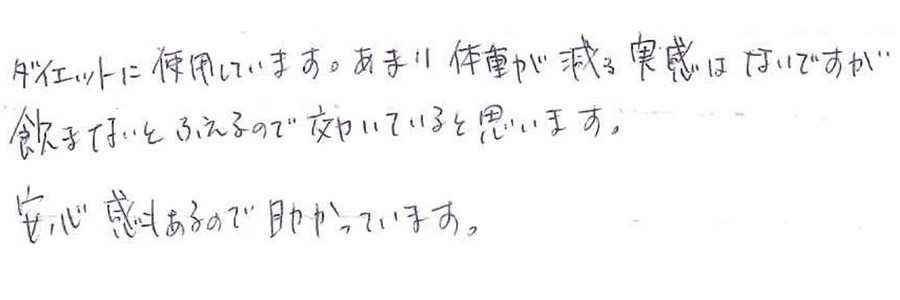 ダイエットに使用しています。あまり体重が減る実感はないですが
飲まないとふえるので効いていると思います。
安心感もあるので助かっています。